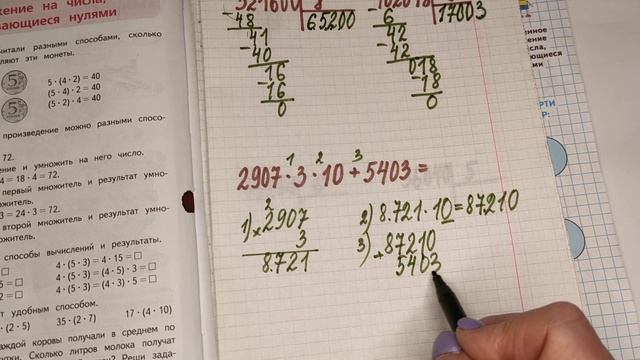 жение на числа,
вающиеся нулями
читали разными способами, сколько
5 · (4 · 2) = 40
(5 · 4) · 2 = 40
(5 · 2) · 4 = 40
произведение можно разными спосо-
72.
ение и умножить на него число.
4 = 18 · 4 = 72.
первый множитель и результат умно-
ожитель.
3 = 24 · 3 = 72.
второй множитель и результат умно-
ожитель.
способы вычислений и результаты.
4 · (5 · 3) = 4 · 15 = □
4 · (5 · 3) = (4 · 5) · 3 = □
4 · (5 · 3) = (4 · 3) · 5 = □
ют удобным способом.
· (2 · 5) 35 · (2 · 7) 17 · (4 · 10)
каждой коровы получали в среднем по
отки. Сколько литров молока получат
65200
-48
41
-40
16
-16
0
17003
-6
42
-42
018
-18
0
1 2 3
2907 · 3 · 10 + 5403 =
2
1) × 2907
3
8.721
2) 8.721 · 10 = 87210
3) 87210
+ 5403